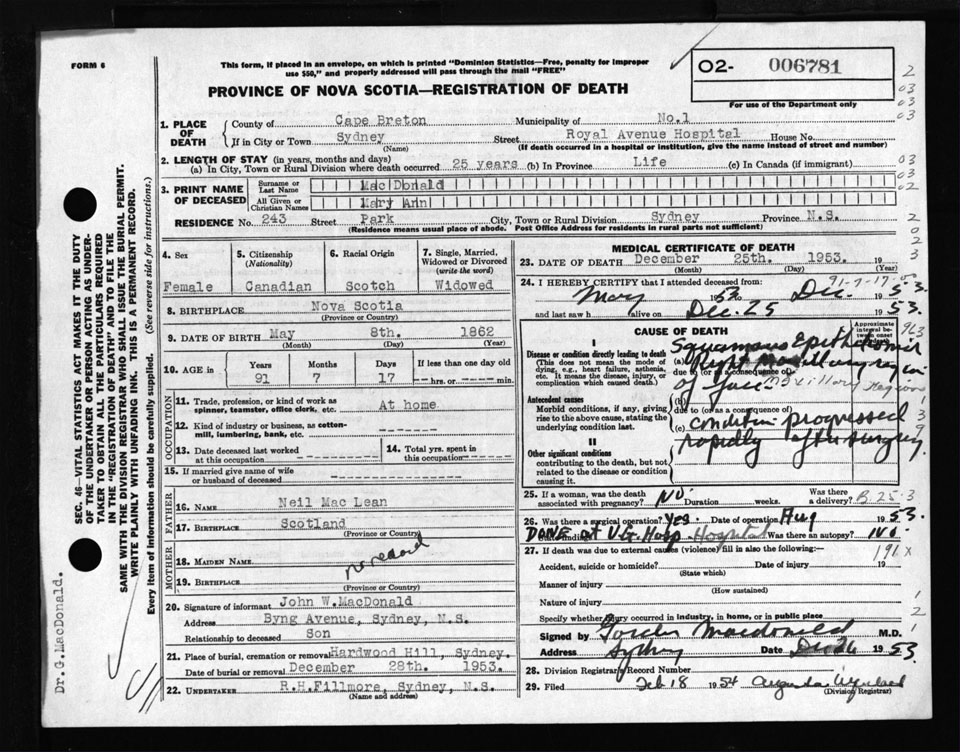 FORM 6
This form, if placed in an envelope, on which is printed "Dominion Statistics—Free, penalty for improper
use $50," and properly addressed will pass through the mail "FREE"
PROVINCE OF NOVA SCOTIA—REGISTRATION OF DEATH
O2- 006781
For use of the Department only
1. PLACE OF DEATH
County of Cape Breton Municipality of No.1
If in City or Town Sydney Street Royal Avenue Hospital House No.
(Name) (If death occurred in a hospital or institution, give the name instead of street and number)
2. LENGTH OF STAY (in years, months and days)
(a) In City, Town or Rural Division where death occurred 25 years (b) In Province Life (c) In Canada (if immigrant)
3. PRINT NAME OF DECEASED
Surname or Last Name MacDonald
All Given or Christian Names Mary Ann
RESIDENCE No. 243 Street Park City, Town or Rural Division Sydney Province N.S.
(Residence means usual place of abode. Post Office Address for residents in rural parts not sufficient)
4. Sex
Female
5. Citizenship
(Nationality)
Canadian
6. Racial Origin
Scotch
7. Single, Married,
Widowed or Divorced
(write the word)
Widowed
8. BIRTHPLACE Nova Scotia
(Province or Country)
9. DATE OF BIRTH May 8th. 1862
(Month) (Day) (Year)
10. AGE in
Years Months Days If less than one day old
91 7 17 hrs. or min.
OCCUPATION
11. Trade, profession, or kind of work as
spinner, teamster, office clerk, etc. At home
12. Kind of industry or business, as cotton-
mill, lumbering, bank, etc.
13. Date deceased last worked
at this occupation
14. Total yrs. spent in
this occupation
15. If married give name of wife
or husband of deceased
FATHER
16. NAME Neil Mac Lean
17. BIRTHPLACE Scotland
(Province or Country)
MOTHER
18. MAIDEN NAME no record
19. BIRTHPLACE
(Province or Country)
20. Signature of informant John W.MacDonald
Address Byng Avenue, Sydney, N.S.
Relationship to deceased Son
21. Place of burial, cremation or removal Hardwood Hill, Sydney.
Date of burial or removal December 28th. 1953.
22. UNDERTAKER R.H.Fillmore, Sydney, N.S.
(Name and address)
MEDICAL CERTIFICATE OF DEATH
23. DATE OF DEATH December 25th. 1953. 19
(Month) (Day) (Year)
24. I HEREBY CERTIFY that I attended deceased from:
May 1953 to Dec. 1953.
and last saw h alive on Dec. 25 1953.
CAUSE OF DEATH
Approximate
interval be-
tween onset
and death
I
Disease or condition directly leading to death
(This does not mean the mode of
dying, e.g., heart failure, asthenia,
etc. It means the disease, injury, or
complication which caused death.)
(a) Squamous Epithelioma
Right maxillary region
due to (or as a consequence of)
of face Maxillary Region
Antecedent causes
Morbid conditions, if any, giving
rise to the above cause, stating the
underlying condition last.
(b)
due to (or as a consequence of)
(c) condition progressed
rapidly after surgery
II
Other significant conditions
contributing to the death, but not
related to the disease or condition
causing it.
25. If a woman, was the death
associated with pregnancy? NO Duration weeks. Was there
a delivery? B.25.3
26. Was there a surgical operation? Yes. Date of operation Aug 1953.
DONE at V.G. Hosp. Hospital Was there an autopsy? No
27. If death was due to external causes (violence) fill in also the following:— 191 x
Accident, suicide or homicide? Date of injury 19
(State which)
Manner of injury
(How sustained)
Nature of injury
Specify whether injury occurred in industry, in home, or in public place
Signed by Gordon Macdonald M.D.
Address Sydney Date Dec 26 1953.
28. Division Registrar's Record Number
29. Filed Feb 18 1954
(Division Registrar)
SEC. 46—VITAL STATISTICS ACT MAKES IT THE DUTY
OF THE UNDERTAKER OR PERSON ACTING AS UNDER-
TAKER TO OBTAIN ALL THE PARTICULARS REQUIRED
IN THE "REGISTRATION OF DEATH" AND TO FILE THE
SAME WITH THE DIVISION REGISTRAR WHO SHALL ISSUE THE BURIAL PERMIT.
WRITE PLAINLY WITH UNFADING INK. THIS IS A PERMANENT RECORD.
Every item of information should be carefully supplied. (See reverse side for instructions.)
Dr.G.MacDonald.